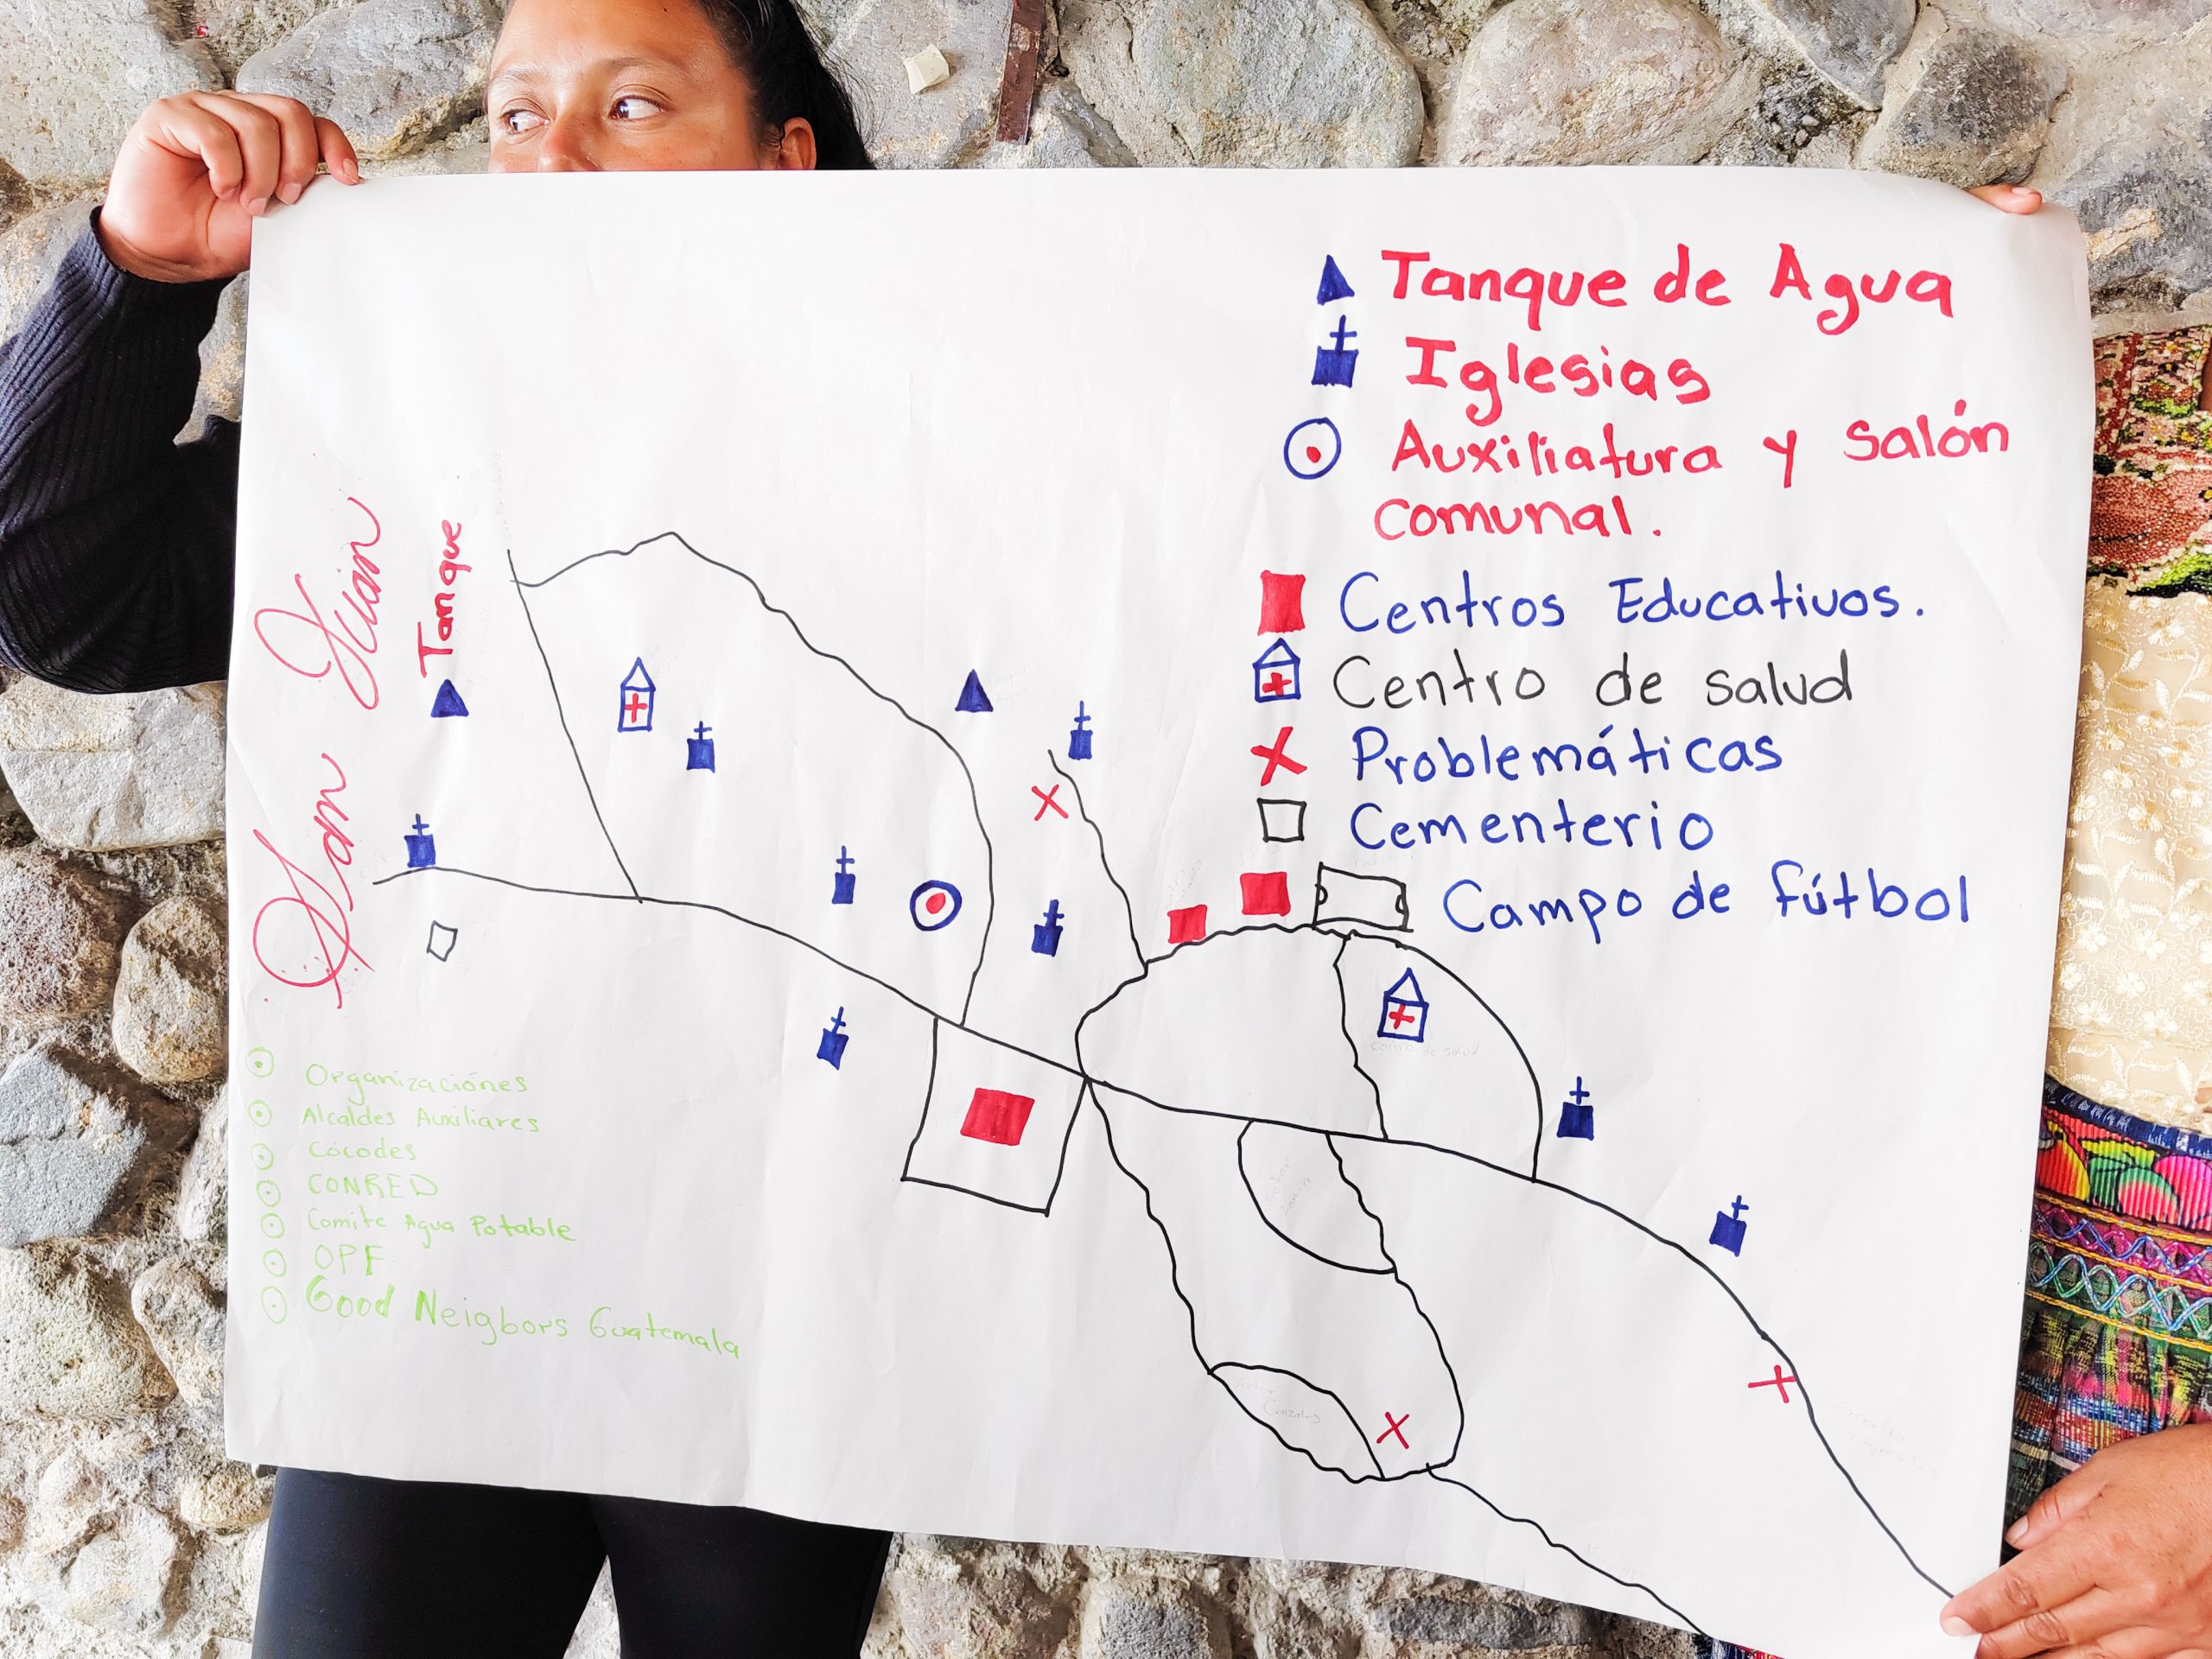 Tanque de Agua
Iglesias
Auxiliatura y Salón
comunal.
Centros Educativos.
Centro de salud
Problemáticas
Cementerio
Campo de fútbol
San Juan
Tanque
Centro de salud
Organizaciónes
Alcaldes Auxiliares
Cocodes
CONRED
Comite Agua Potable
OPF
Good Neigbors Guatemala